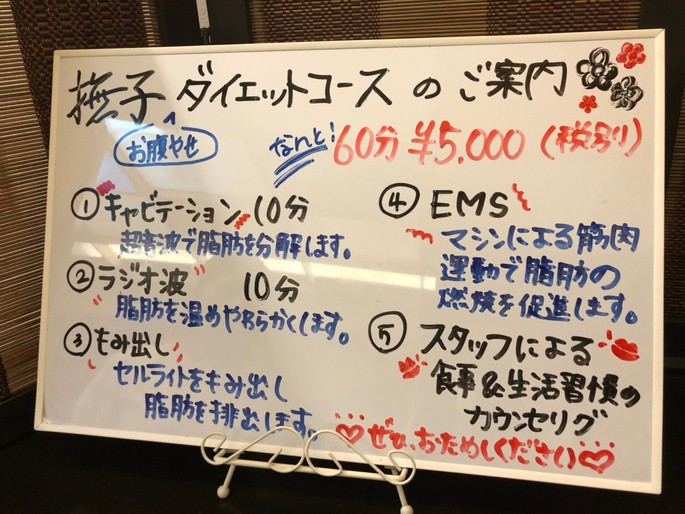 撫子ダイエットコースのご案内
お腹やせ
なんと! 60分 ¥5.000 (税別)
① キャビテーション 10分
超音波で脂肪を分解します。
② ラジオ波 10分
脂肪を温めやわらかくします。
③ もみ出し
セルライトをもみ出し
脂肪を排出します。
④ EMS
マシンによる筋肉
運動で脂肪の
燃焼を促進します。
⑤ スタッフによる
食事&生活習慣の
カウンセリグ
ぜひ、おためしください